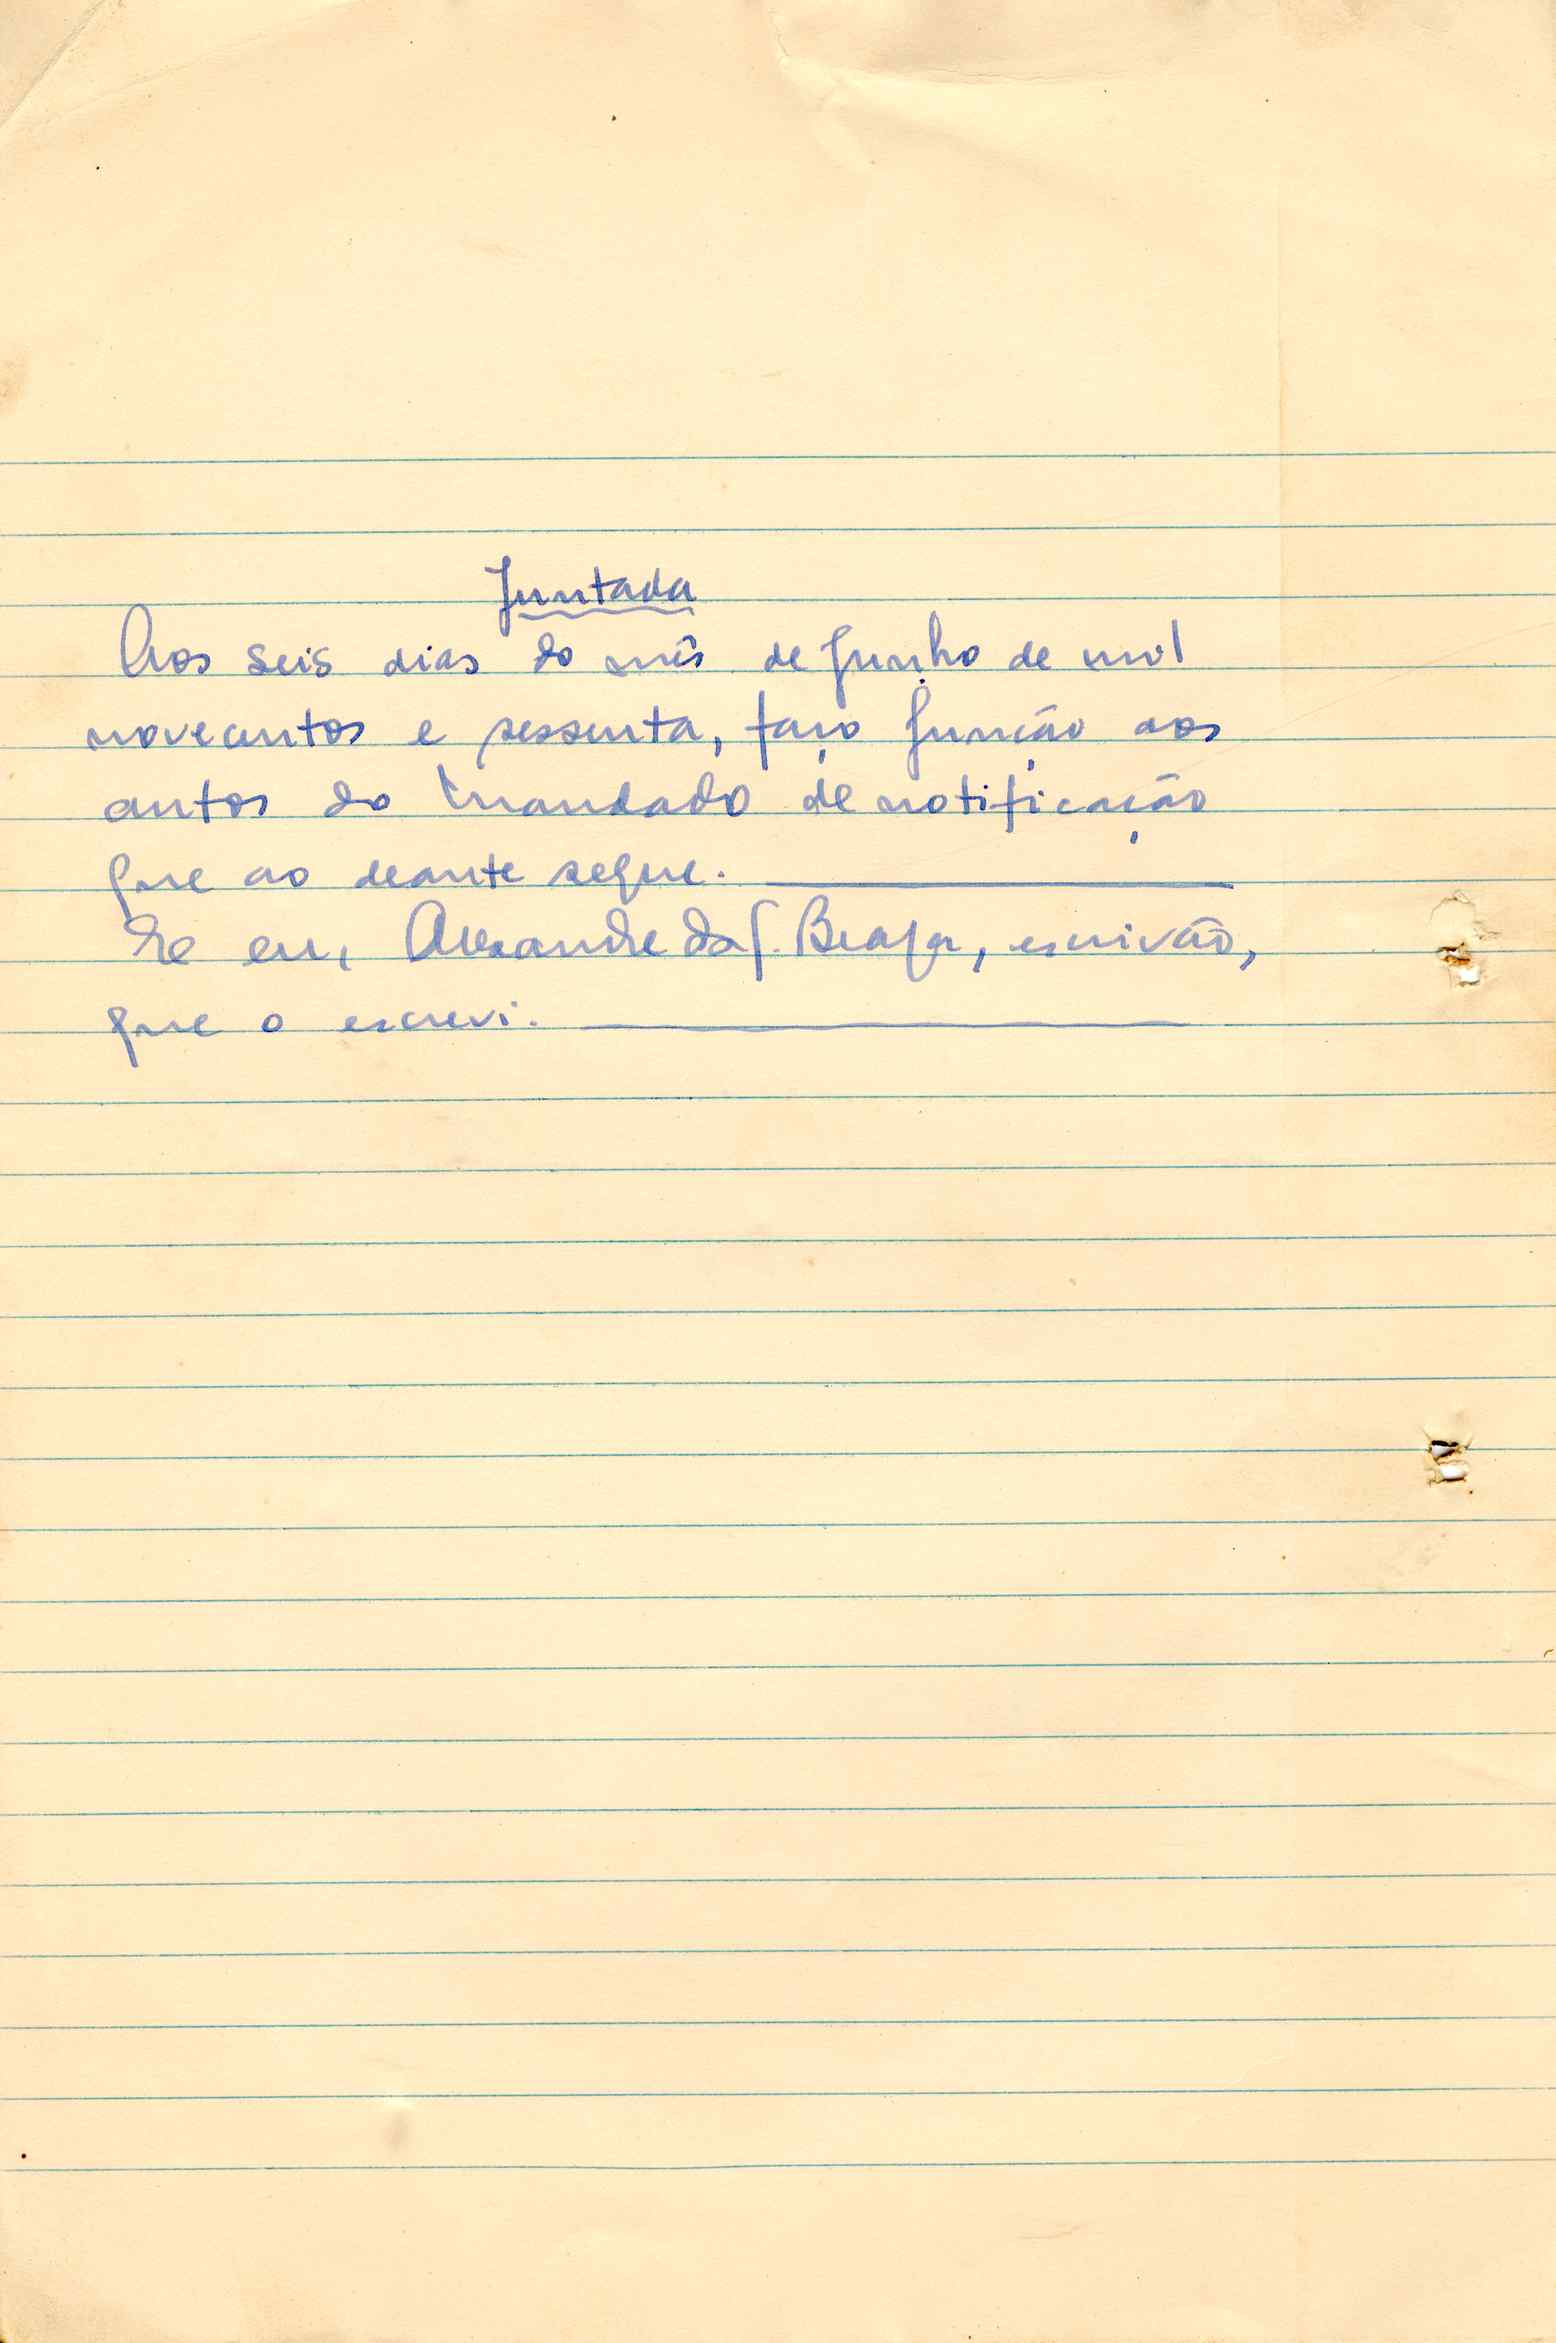 Juntada
Aos seis dias do mês de Junho de mil
novecentos e sessenta, faço junção aos
autos do Mandado de notificação
que ao deante segue.
E eu, Alexandre da S. Braga, escrivão,
que o escrevi.